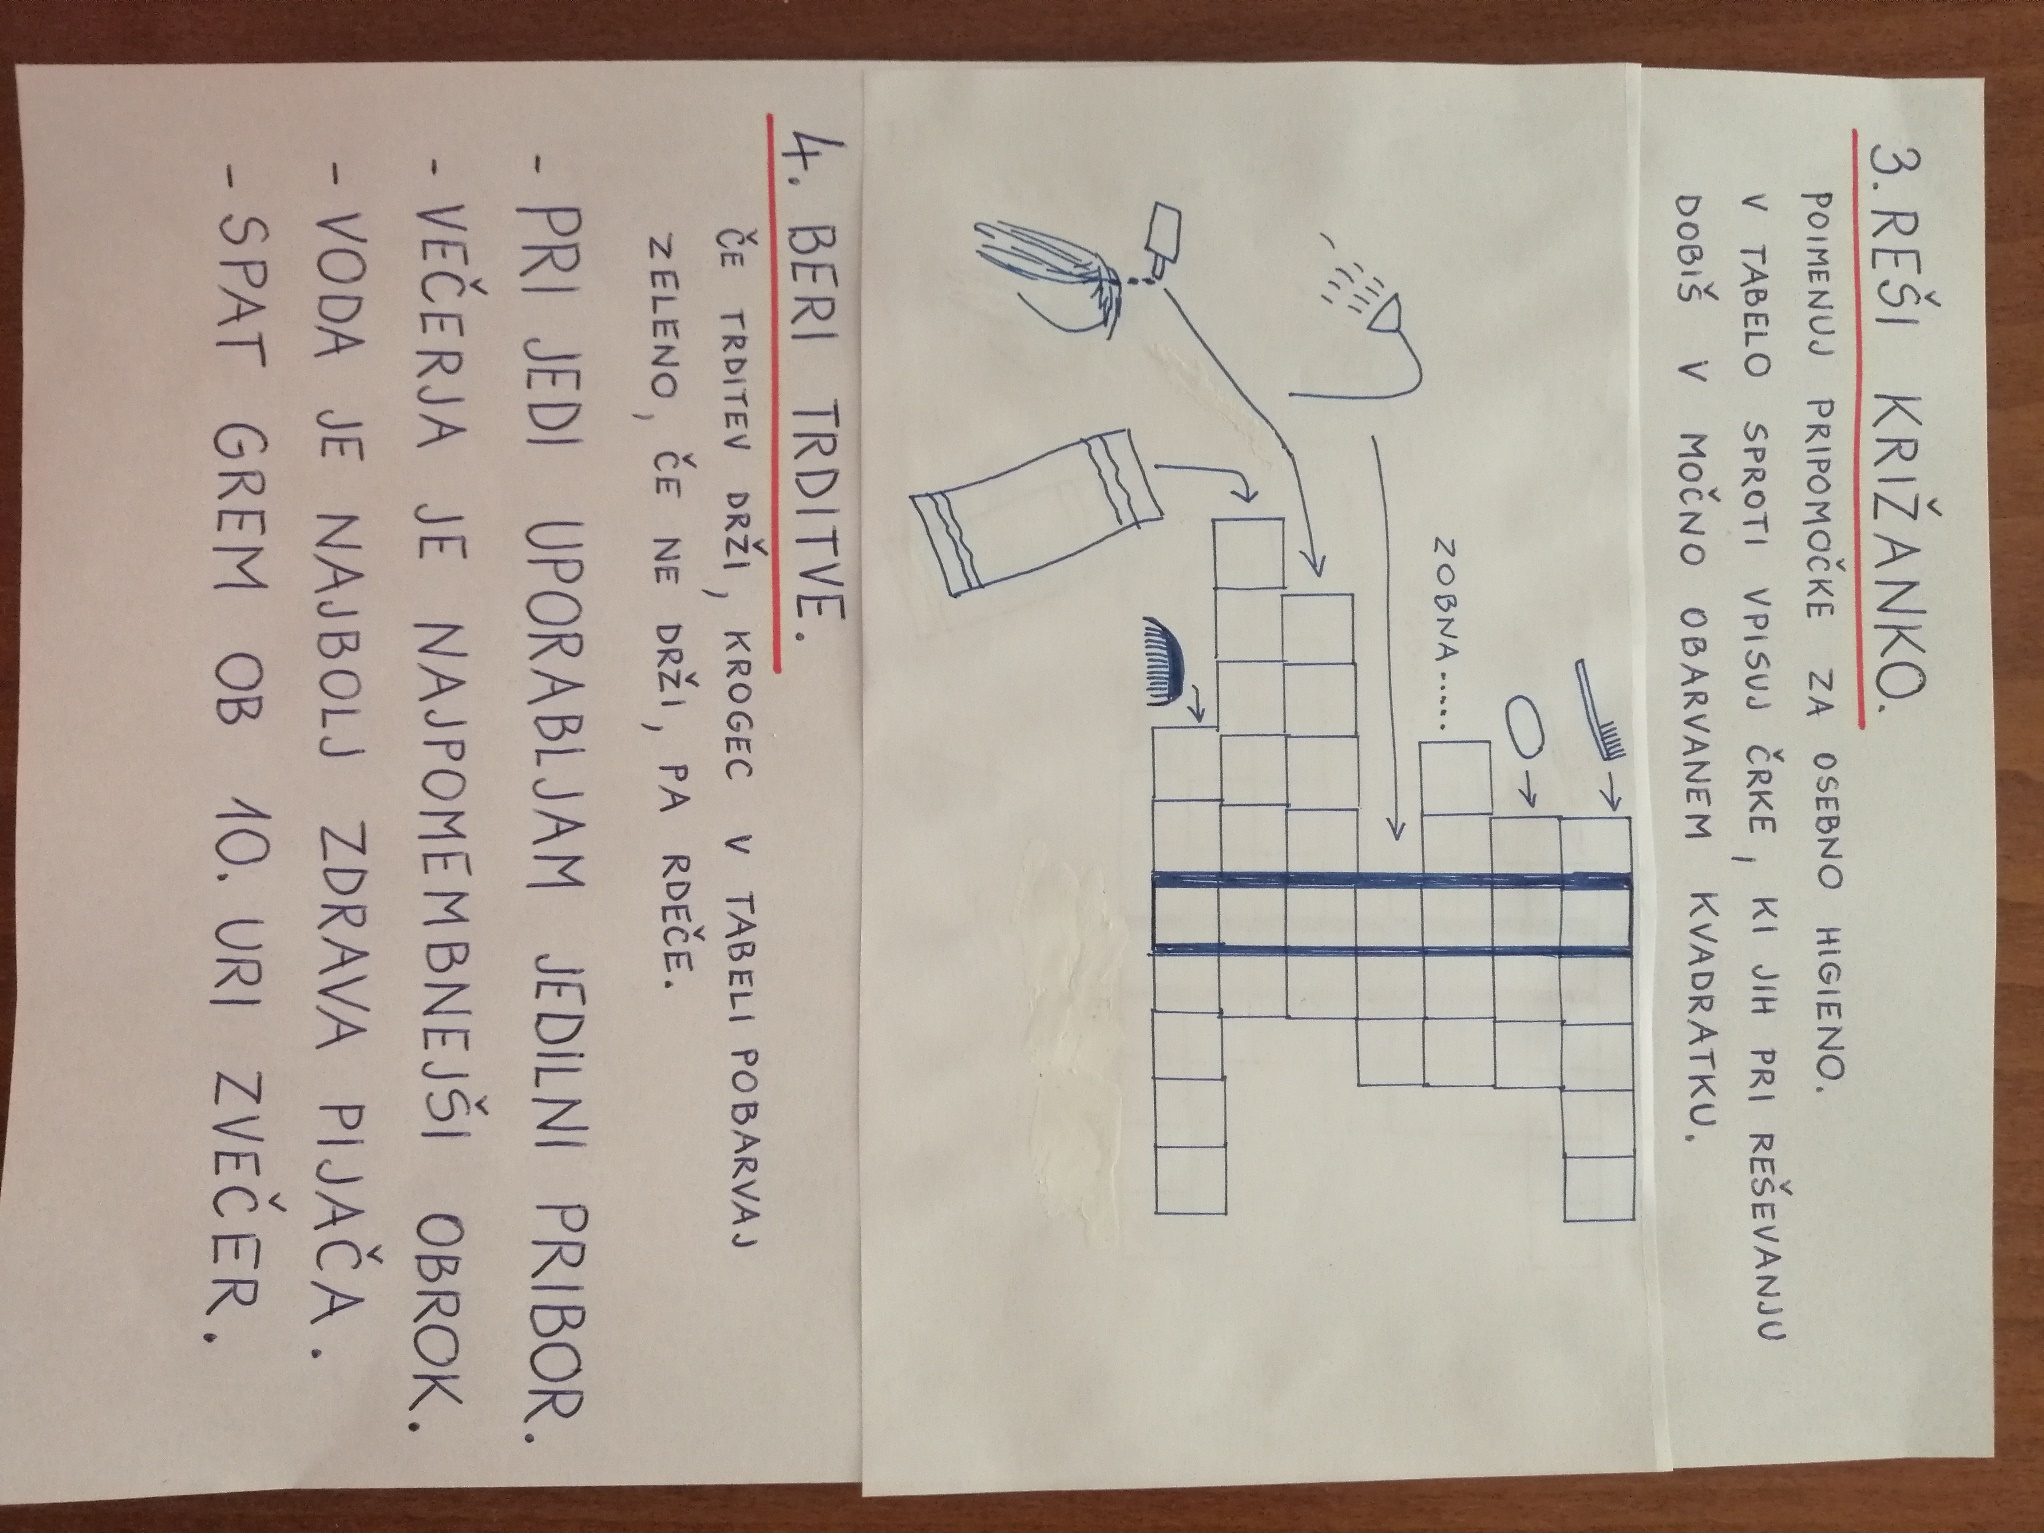 3. REŠI KRIŽANKO.
POIMENUJ PRIPOMOČKE ZA OSEBNO HIGIENO.
V TABELO SPROTI VPISUJ ČRKE, KI JIH PRI REŠEVANJU
DOBIŠ V MOČNO OBARVANEM KVADRATKU.
ZOBNA......
4. BERI TRDITVE.
ČE TRDITEV DRŽI, KROGEC V TABELI POBARVAJ
ZELENO, ČE NE DRŽI, PA RDEČE.
- PRI JEDI UPORABLJAM JEDILNI PRIBOR.
- VEČERJA JE NAJPOMEMBNEJŠI OBROK.
- VODA JE NAJBOLJ ZDRAVA PIJAČA.
- SPAT GREM OB 10. URI ZVEČER.